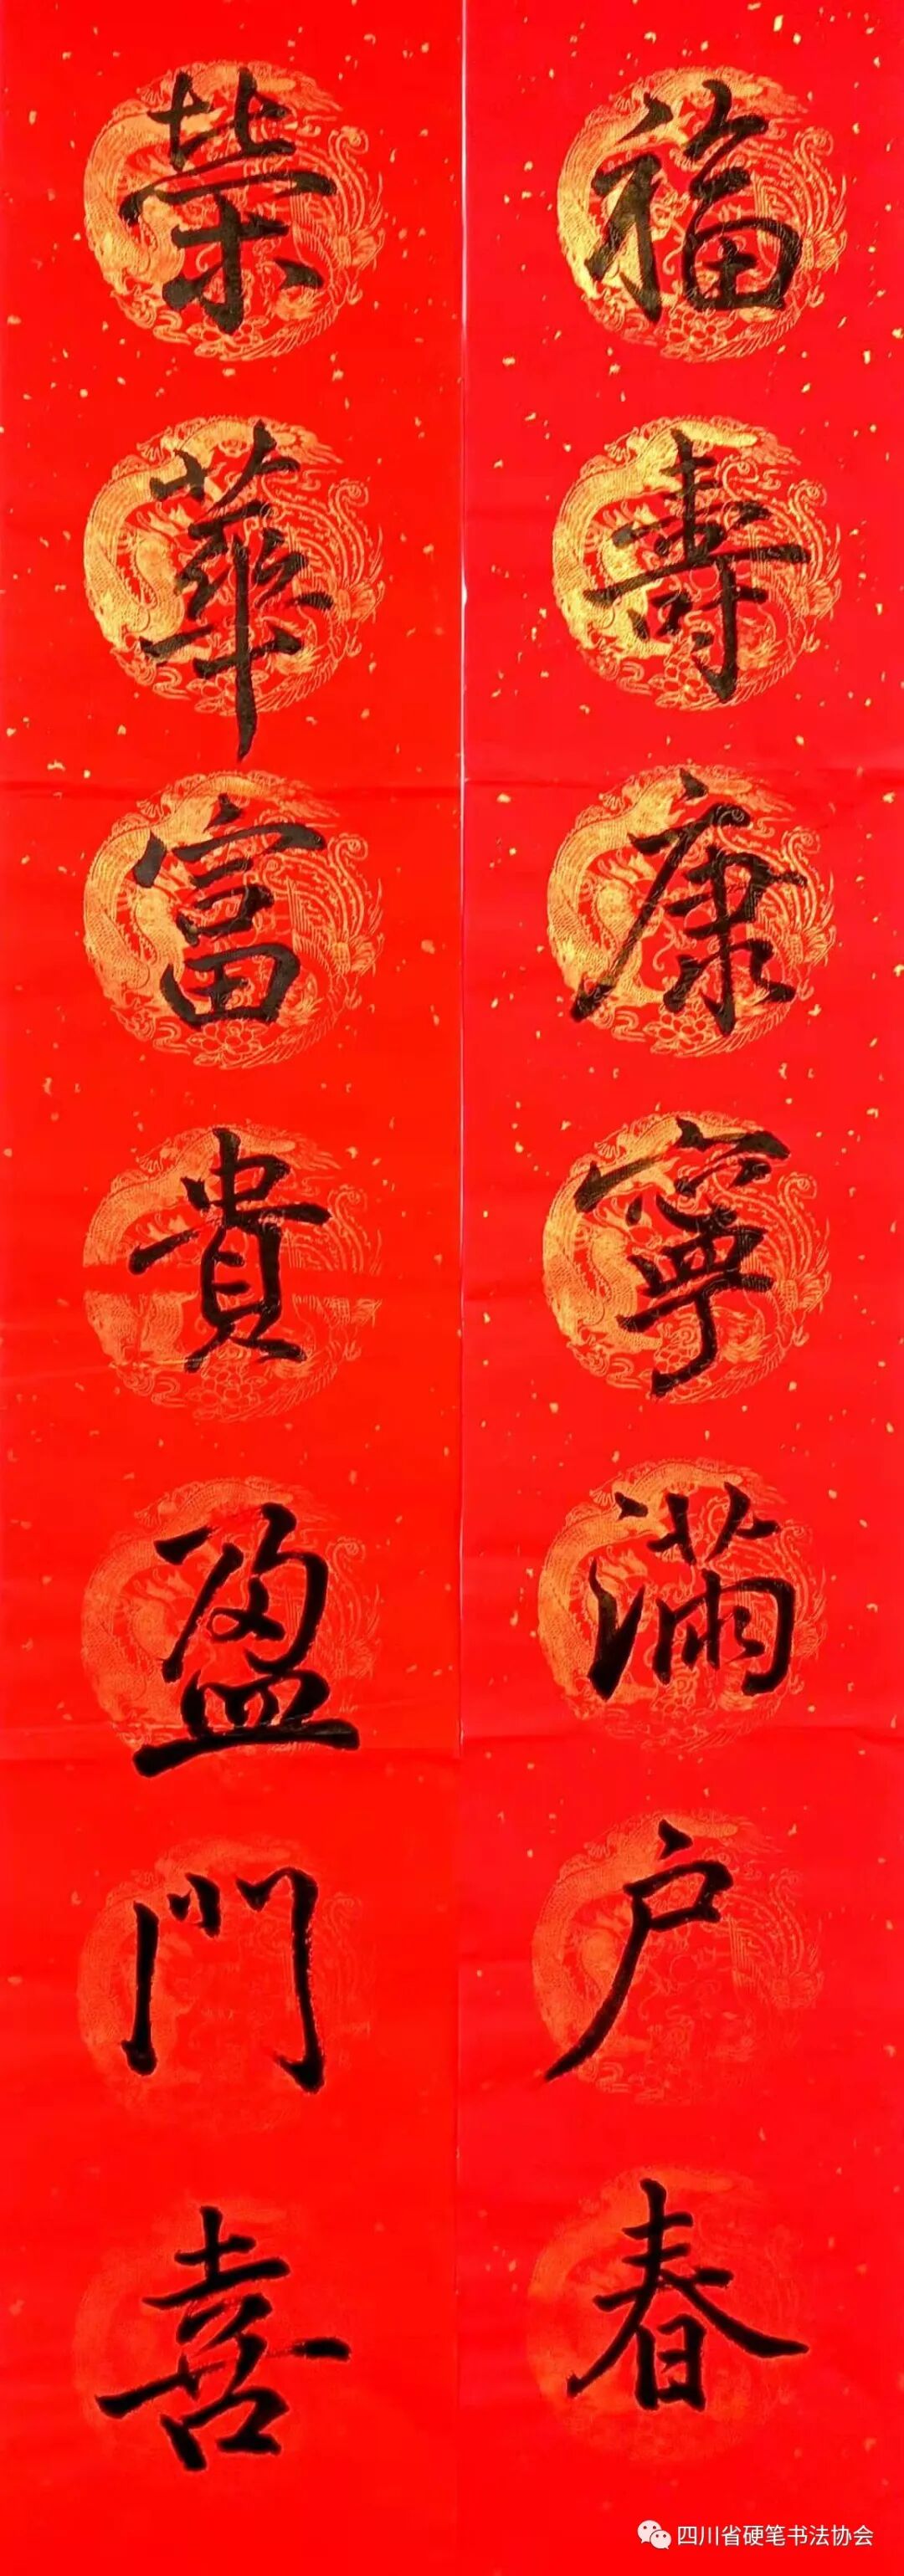 福寿康寧滿户春
榮華富貴盈門喜
四川省硬笔书法协会